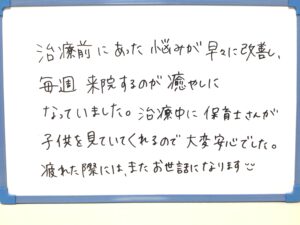 治療前にあった悩みが早々に改善し、
毎週来院するのが癒やしに
なっていました。治療中に保育士さんが
子供を見ていてくれるので大変安心でした。
疲れた際には、またお世話になります☺